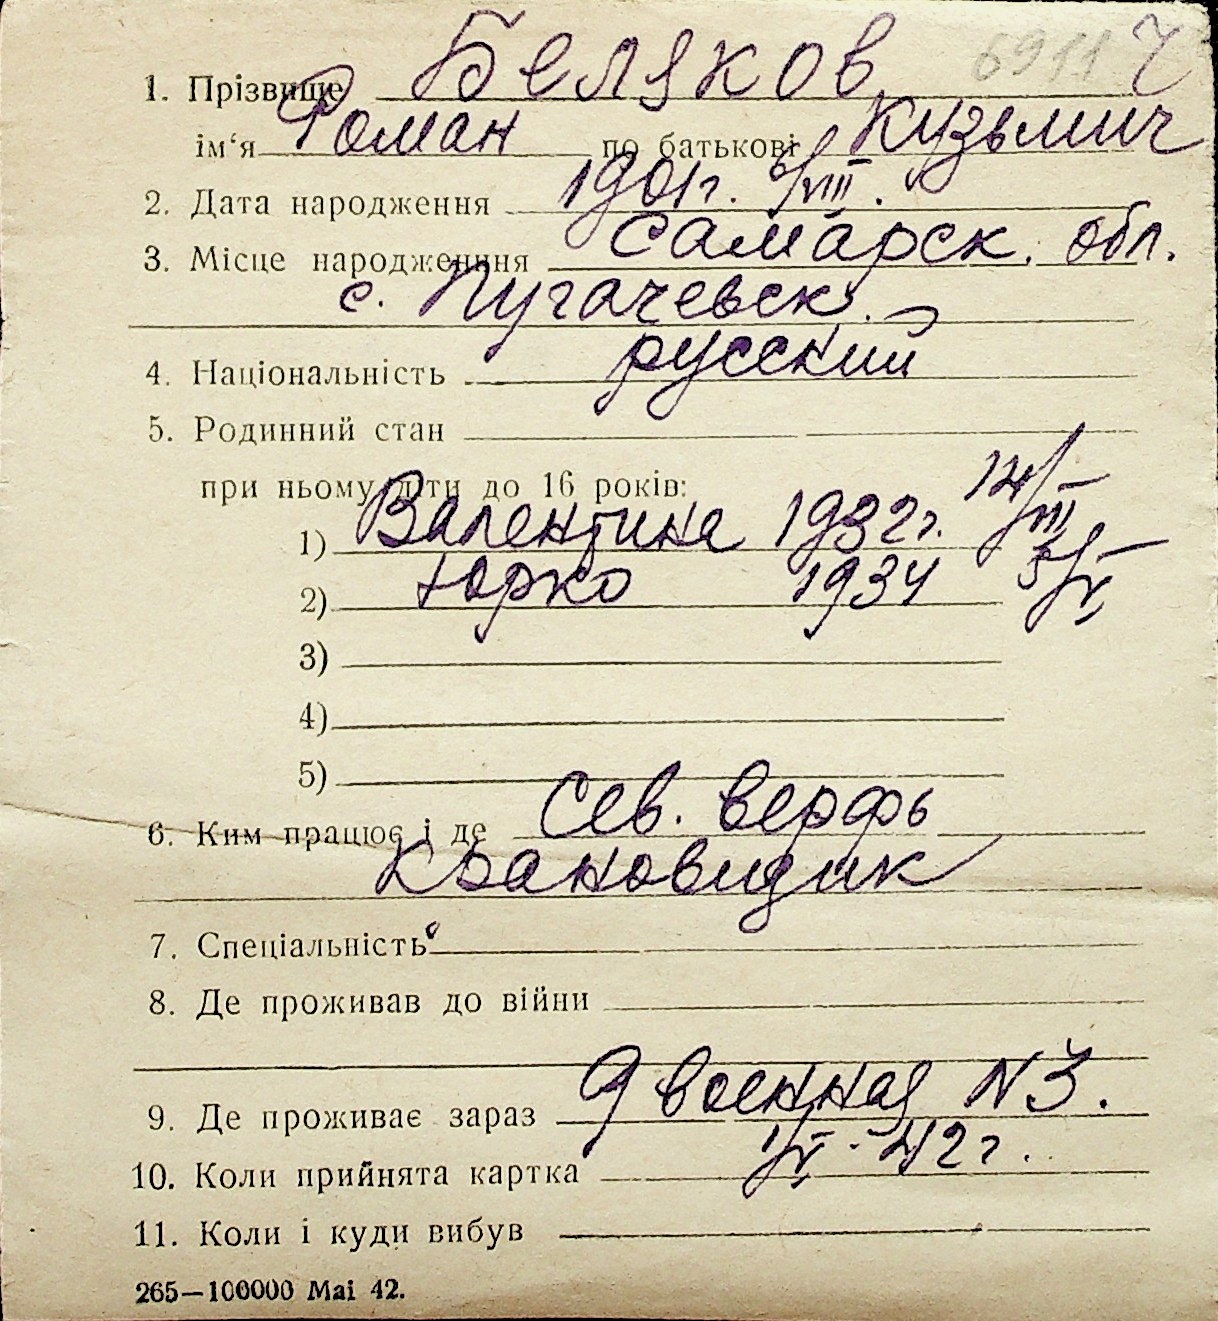 6911 Ч
1. Прізвище Беляков
ім‘я Роман по батькові Кузьмич
2. Дата народження 1901г. 6/VIII.
3. Місце народженння Самарск. обл.
с. Пугачевск.
4. Національність русский
5. Родинний стан
при ньому діти до 16 років:
1) Валентина 1932г. 14/VIII
2) Юрко 1934 3/V
3)
4)
5)
6. Ким працює і де Сев. верфь
7. Спеціальність
8. Де проживав до війни
9. Де проживає зараз 9 военная N3.
10. Коли прийнята картка 1/V-42г.
11. Коли і куди вибув
265—100000 Mai 42.